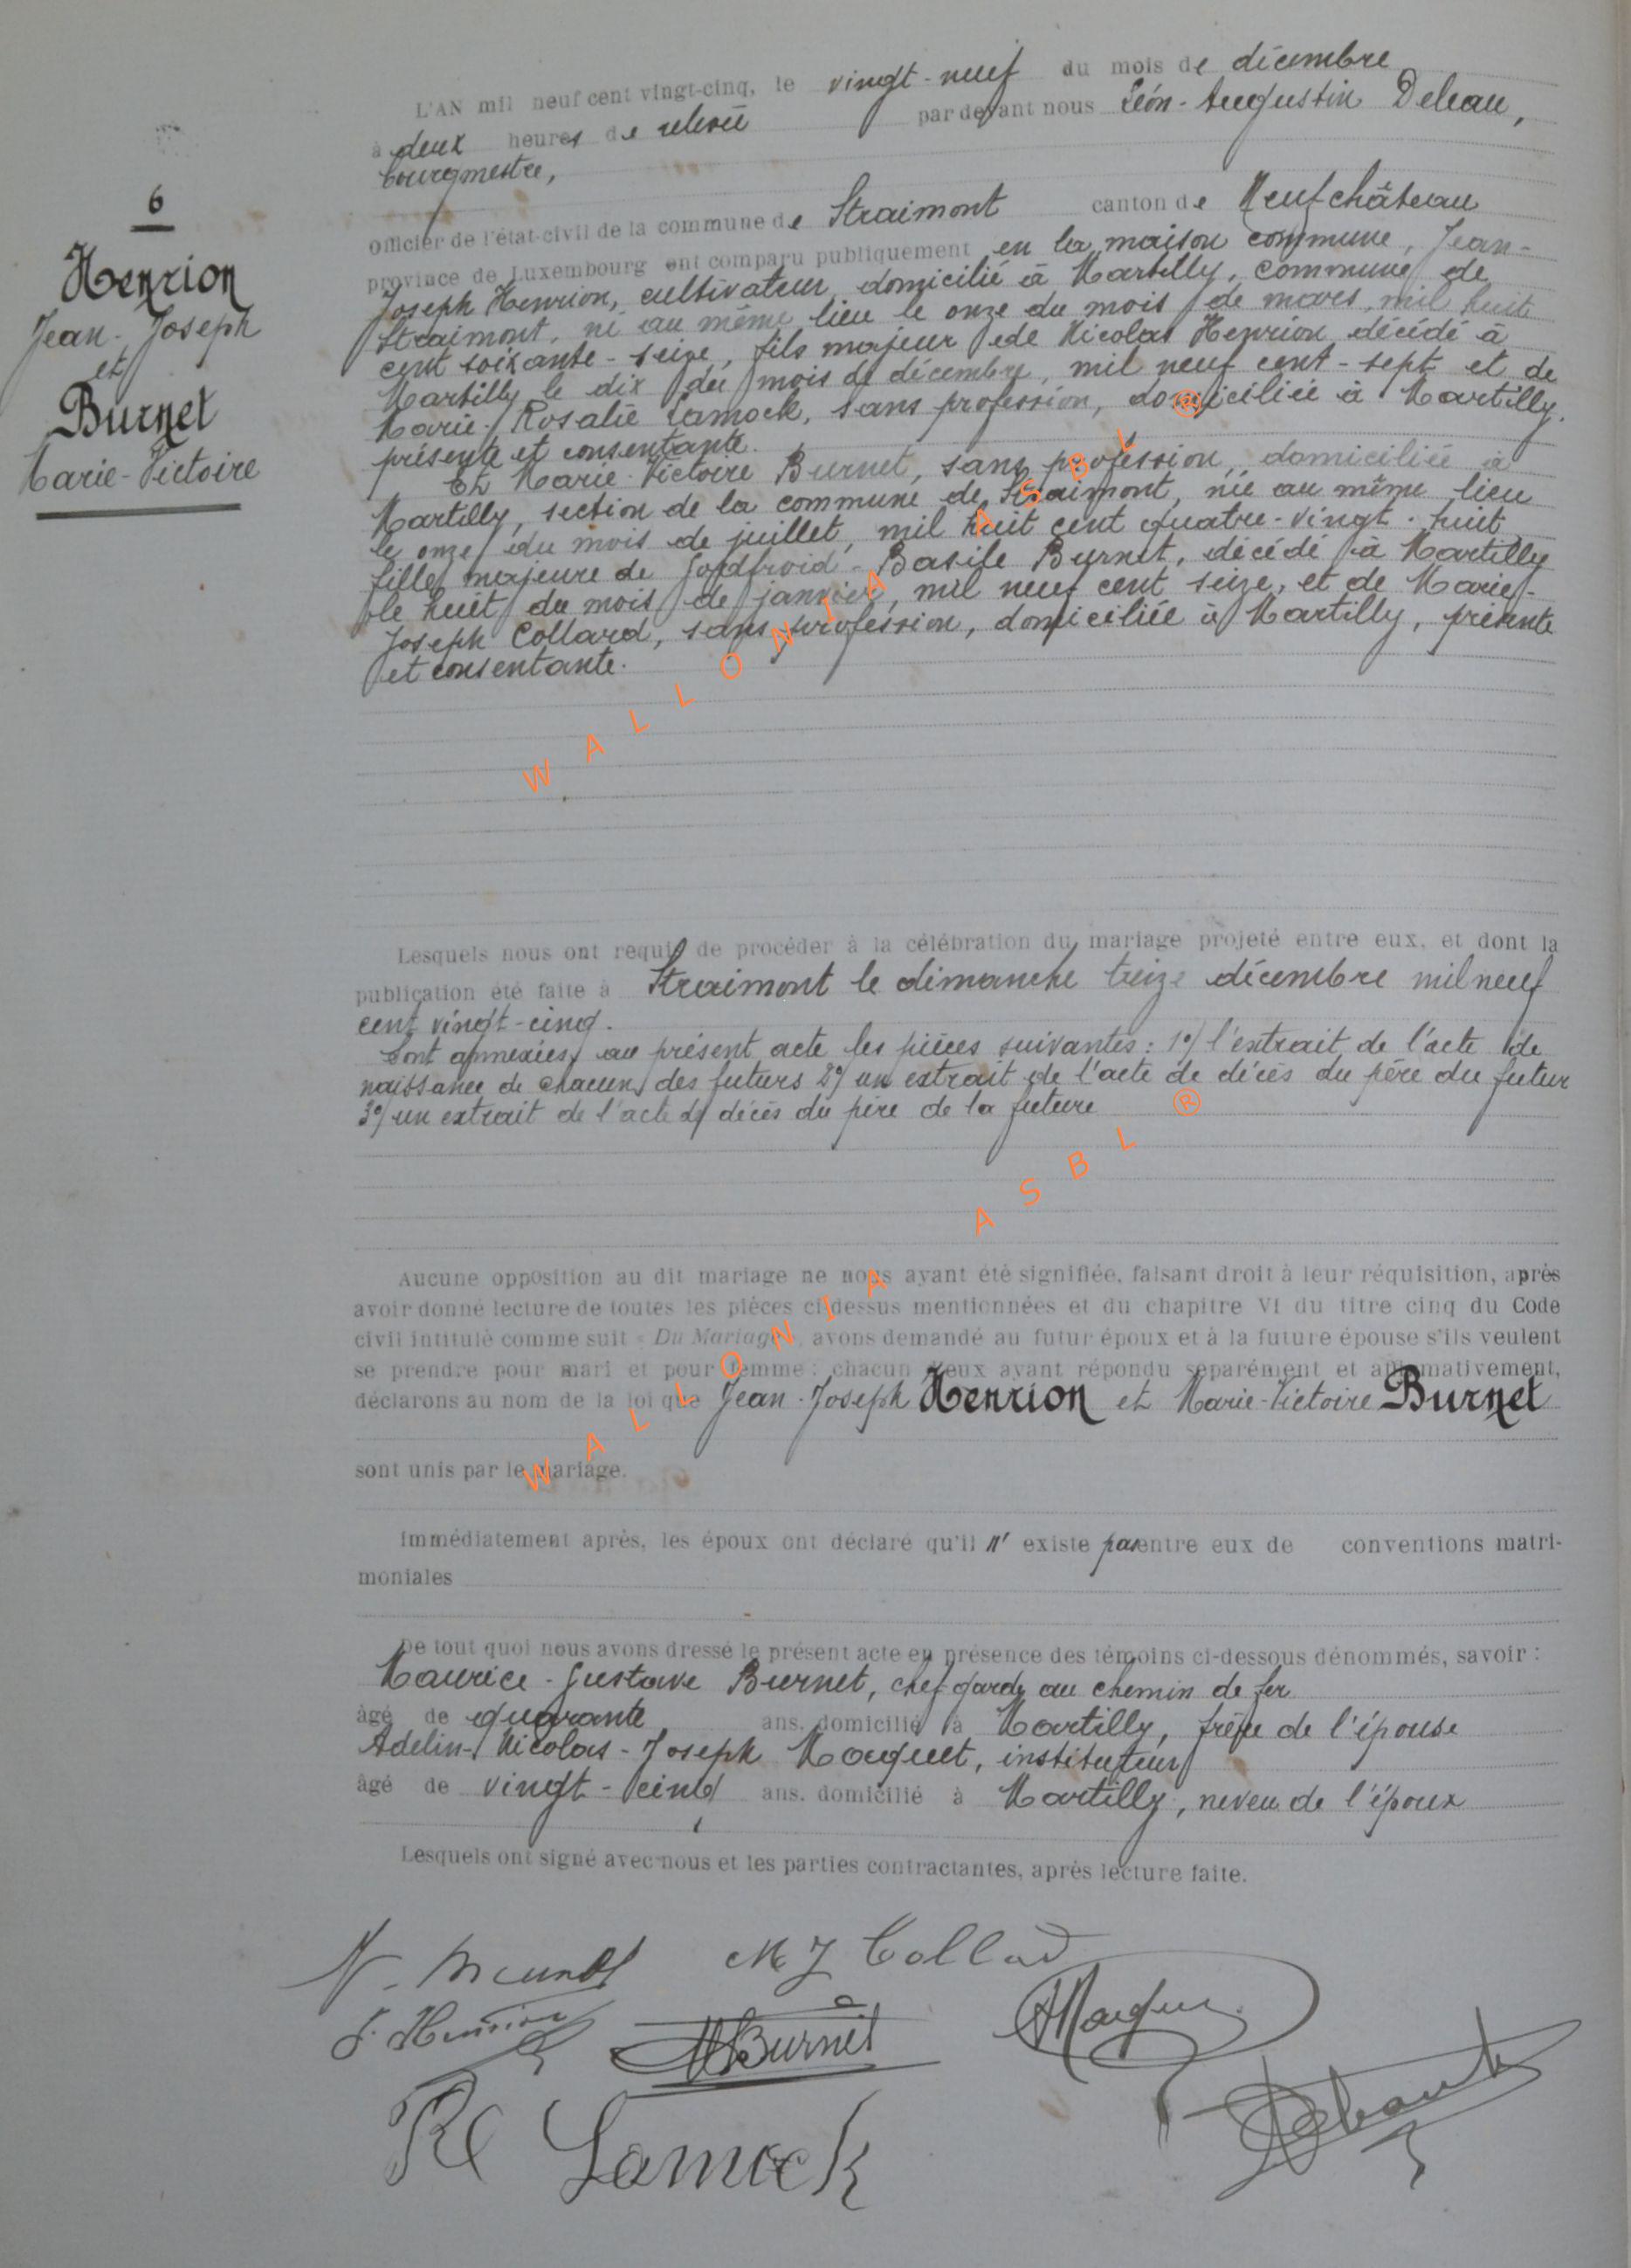 6
Henrion
Jean-Joseph
et
Burnet
Marie-Victoire
L'AN mil neuf cent vingt-cinq, le vingt-neuf du mois de décembre
à deux heures de relevée par devant nous Léón-Augustin Deleau,
bourgmestre,
officier de l'état-civil de la commune de Straimont canton de Neufchâteau
province de Luxembourg ont comparu publiquement en la maison commune, Jean-
Joseph Henrion, cultivateur, domicilié à Martilly, commune de
Straimont, né au même lieu le onze du mois de mars, mil huit
cent soixante-seize, fils majeur de Nicolas Henrion décédé à
Martilly le dix du mois de décembre, mil neuf cent-sept et de
Marie-Rosalie Lamock, sans profession, domiciliée à Martilly,
présente et consentante.
Et Marie-Victoire Burnet, sans profession, domiciliée à
Martilly, section de la commune de Straimont, née au même lieu
le onze du mois de juillet, mil huit cent quatre-vingt-huit
fille majeure de Godfroid-Basile Burnet, décédé à Martilly
le huit du mois de janvier, mil neuf cent seize, et de Marie-
Joseph Collard, sans profession, domiciliée à Martilly, présente
et consentante.
WALLONIA ASBL ®
Lesquels nous ont requis de procéder à la célébration du mariage projeté entre eux, et dont la
publication été faite à Straimont le dimanche treize décembre mil neuf
cent vingt-cinq.
Sont annexées au présent acte les pièces suivantes: 1°/ l'extrait de l'acte de
naissance de chacun des futurs 2°/ un extrait de l'acte de décès du père du futur
3°/ un extrait de l'acte de décès du père de la future
Aucune opposition au dit mariage ne nous ayant été signifiée, faisant droit à leur réquisition, après
avoir donné lecture de toutes les pièces ci-dessus mentionnées et du chapitre VI du titre cinq du Code
civil intitulé comme suit « Du Mariage », avons demandé au futur époux et à la future épouse s'ils veulent
se prendre pour mari et pour femme : chacun d'eux ayant répondu séparément et affirmativement,
déclarons au nom de la loi que Jean-Joseph Henrion et Marie-Victoire Burnet
sont unis par le mariage.
WALLONIA ASBL ®
Immédiatement après, les époux ont déclaré qu'il n'existe pas entre eux de conventions matri-
moniales
De tout quoi nous avons dressé le présent acte en présence des témoins ci-dessous dénommés, savoir :
Maurice-Gustave Burnet, chef garde au chemin de fer
âgé de quarante ans, domicilié à Martilly, frère de l'épouse
Adelin-Nicolas-Joseph Maquet, instituteur
âgé de vingt-cinq ans, domicilié à Martilly, neveu de l'époux
Lesquels ont signé avec nous et les parties contractantes, après lecture faite.
M J Collard
J. Henrion
MBurnet
AMaquet
R Lamock